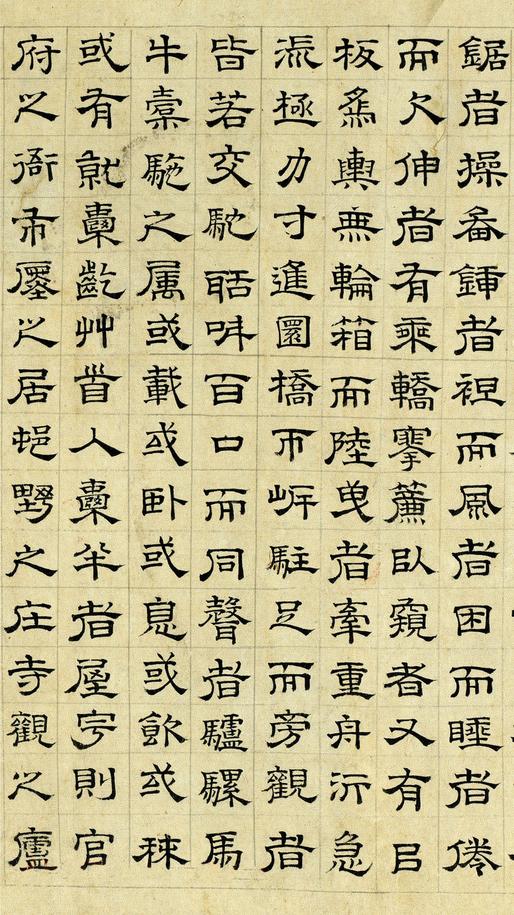 鋸者操畚鍤者袒而風者困而睡者倦
而欠伸者有乘轎搴簾臥窺者又有㠯
板為輿無輪箱而陸曳者牽重舟泝急
流極力寸進圜橋帀岸駐足而旁觀者
皆若交駞聒呌百口而同聲者驢騾馬
牛槖駞之属或載或卧或息或飲或秣
或有就囊齕艸首入囊半者屋宇則官
府之衙市廛之居邨野之庄寺觀之廬